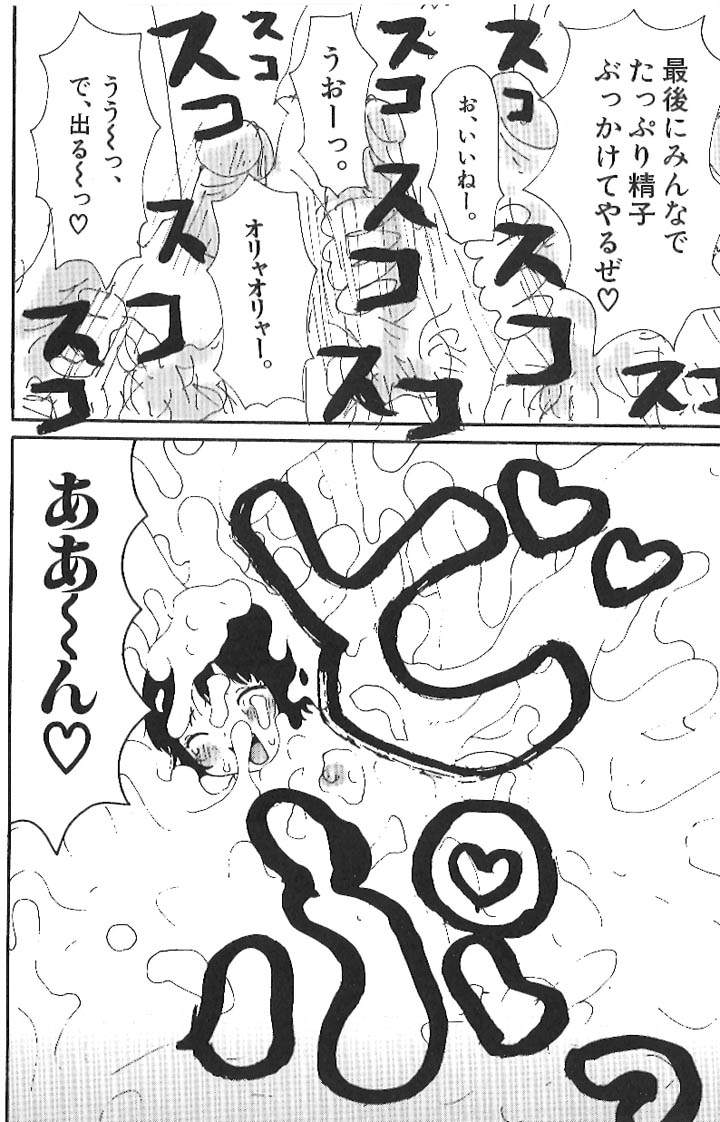 最後にみんなで
たっぷり精子
ぶっかけてやるぜ♡
スコ
お、いいねー。
スコ
スコ
スコ
うおーっ。
スコ
スコ
スコ
オリャオリャー。
スコ
スコ
スコ
うう～っ、
で、出る～っ♡
スコ
どぷっ
♡♡
ああ～ん♡